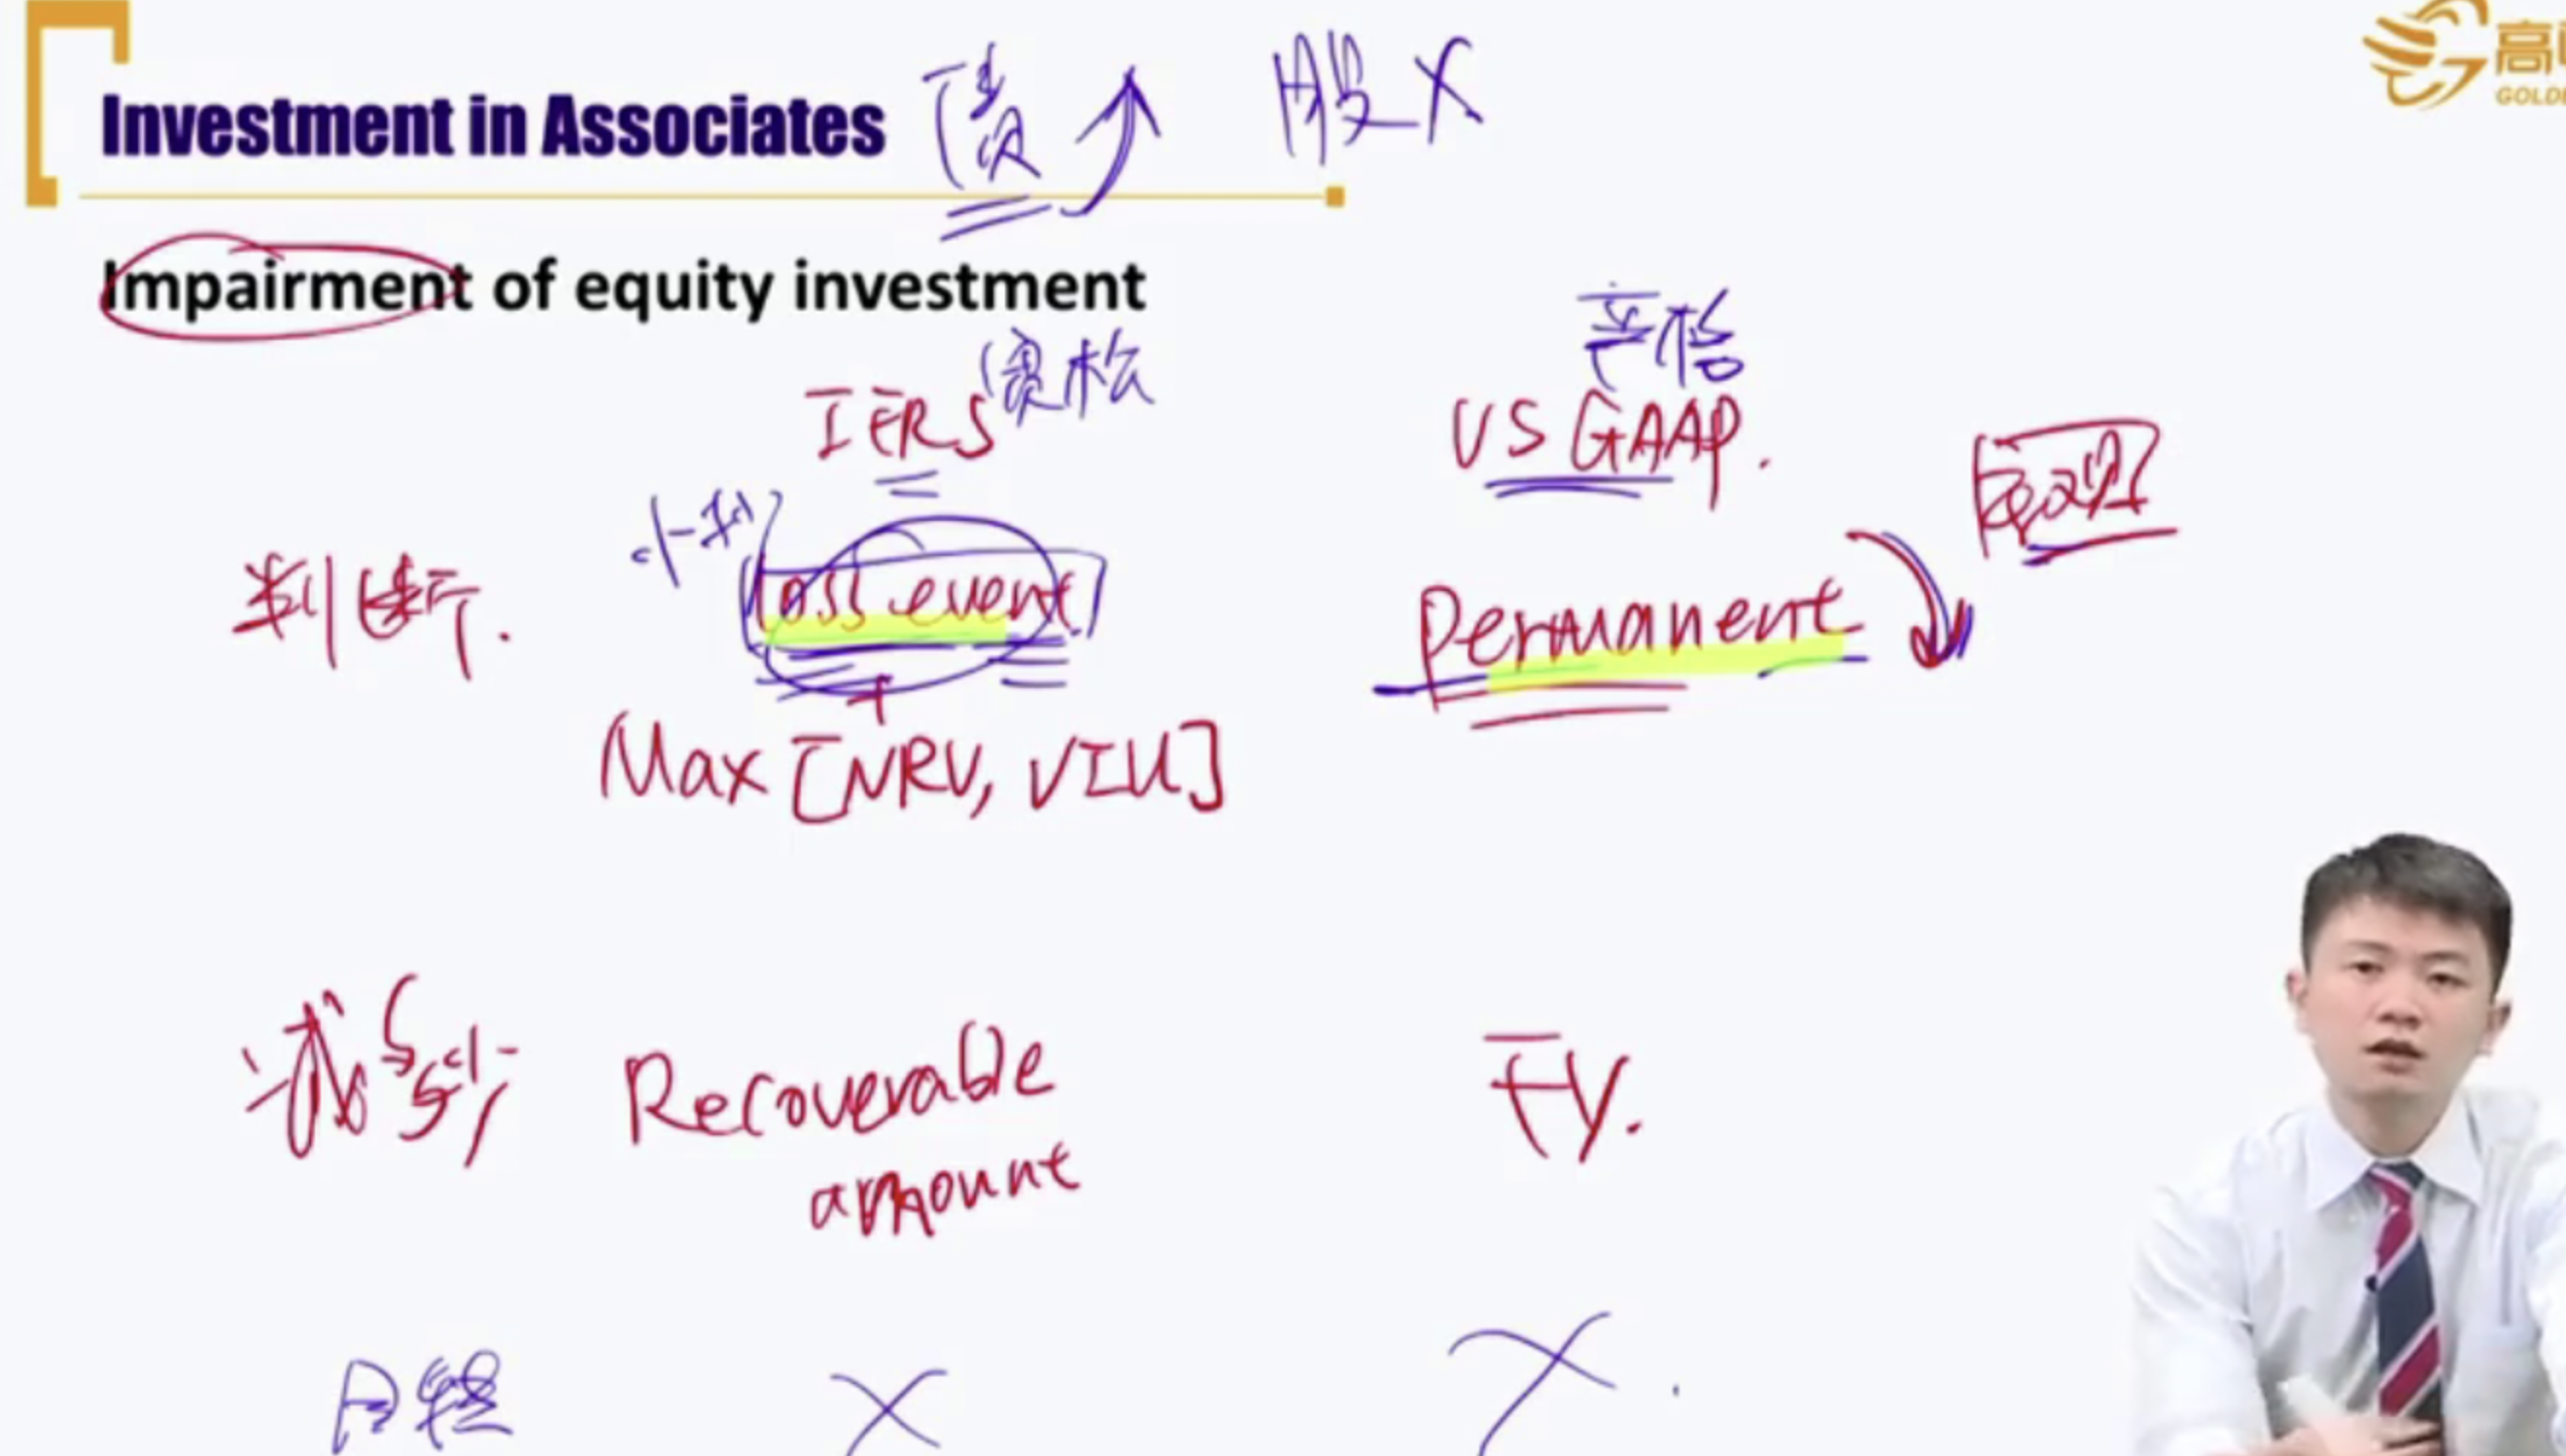 Investment in Associates 债 股 X
高
GOLD
Impairment of equity investment
IFRS 宽松 US GAAP. 严格
判断. loss event Permanent
+
Max [NRV, VIU]
减多少 Recoverable FV.
amount
X X